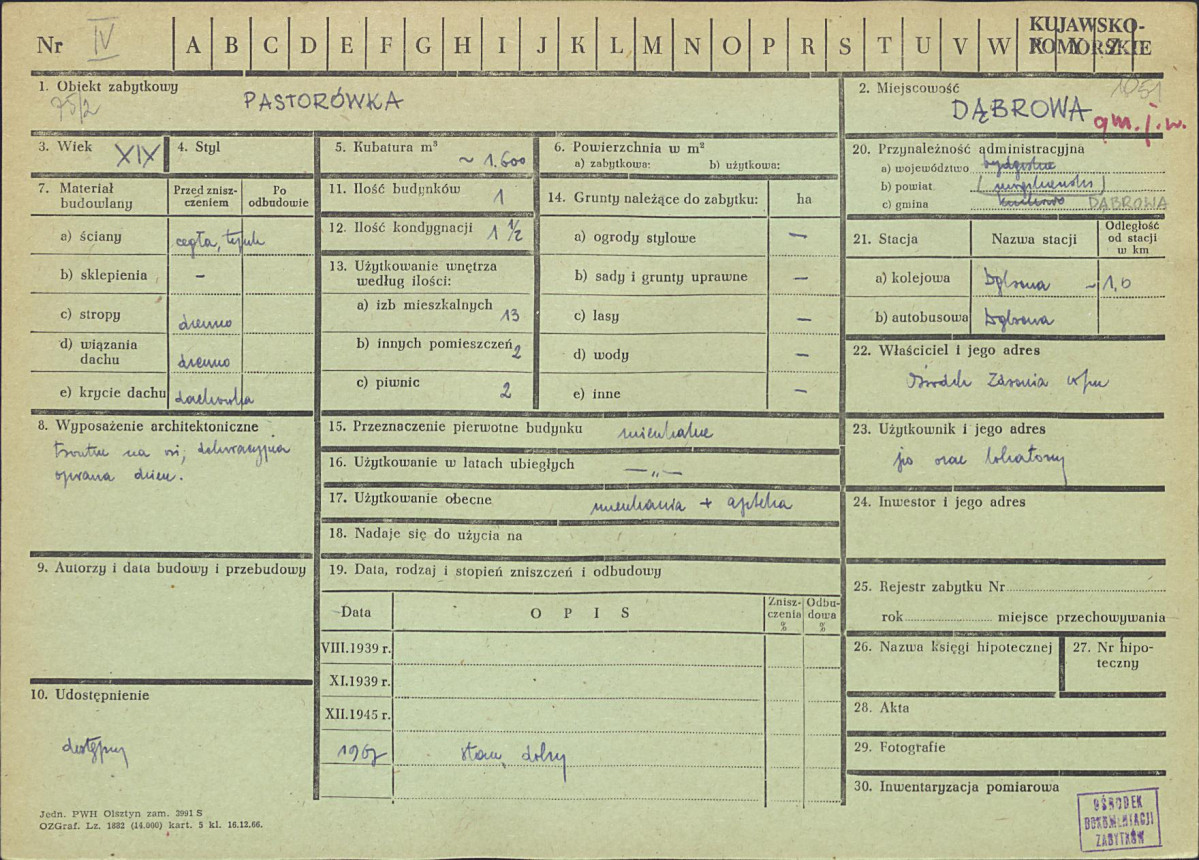 Nr IV A B C D E F G H I J K L M N O P R S T U V W KUJAWSKO-
POMORSKIE
1. Obiekt zabytkowy
75/2
PASTORÓWKA
2. Miejscowość
1051
DĄBROWA
gm. j.w.
3. Wiek XIX
4. Styl
5. Kubatura m³
~ 1.600
6. Powierzchnia w m²
a) zabytkowa: b) użytkowa:
20. Przynależność administracyjna
a) województwo bydgoskie
b) powiat
c) gmina DĄBROWA
7. Materiał
budowlany
Przed znisz-
czeniem
Po
odbudowie
a) ściany cegła, tynk
b) sklepienia –
c) stropy drewno
d) wiązania
dachu drewno
e) krycie dachu dachówka
11. Ilość budynków 1
12. Ilość kondygnacji 1 ½
13. Użytkowanie wnętrza
według ilości:
a) izb mieszkalnych 13
b) innych pomieszczeń 2
c) piwnic 2
14. Grunty należące do zabytku: ha
a) ogrody stylowe –
b) sady i grunty uprawne –
c) lasy –
d) wody –
e) inne –
21. Stacja
Nazwa stacji
Odległość
od stacji
w km
a) kolejowa Dąbrowa ~1,0
b) autobusowa Dąbrowa
22. Właściciel i jego adres
Ośrodek Zdrowia
8. Wyposażenie architektoniczne
na osi; dekoracyjna
oprawa drzwi.
15. Przeznaczenie pierwotne budynku mieszkalne
16. Użytkowanie w latach ubiegłych — „ —
17. Użytkowanie obecne mieszkania + apteka
18. Nadaje się do użycia na
23. Użytkownik i jego adres
jw oraz lokatorzy
24. Inwestor i jego adres
9. Autorzy i data budowy i przebudowy
19. Data, rodzaj i stopień zniszczeń i odbudowy
Data
OPIS
Znisz-
czenia
%
Odbu-
dowa
%
VIII.1939 r.
XI.1939 r.
XII.1945 r.
1967 stan dobry
25. Rejestr zabytku Nr
rok miejsce przechowywania
26. Nazwa księgi hipotecznej
27. Nr hipo-
teczny
28. Akta
29. Fotografie
30. Inwentaryzacja pomiarowa
10. Udostępnienie
dostępny
Jedn. PWH Olsztyn zam. 3991 S
OZGraf. Lz. 1882 (14.000) kart. 5 kl. 16.12.66.
OŚRODEK
DOKUMENTACJI
ZABYTKÓW